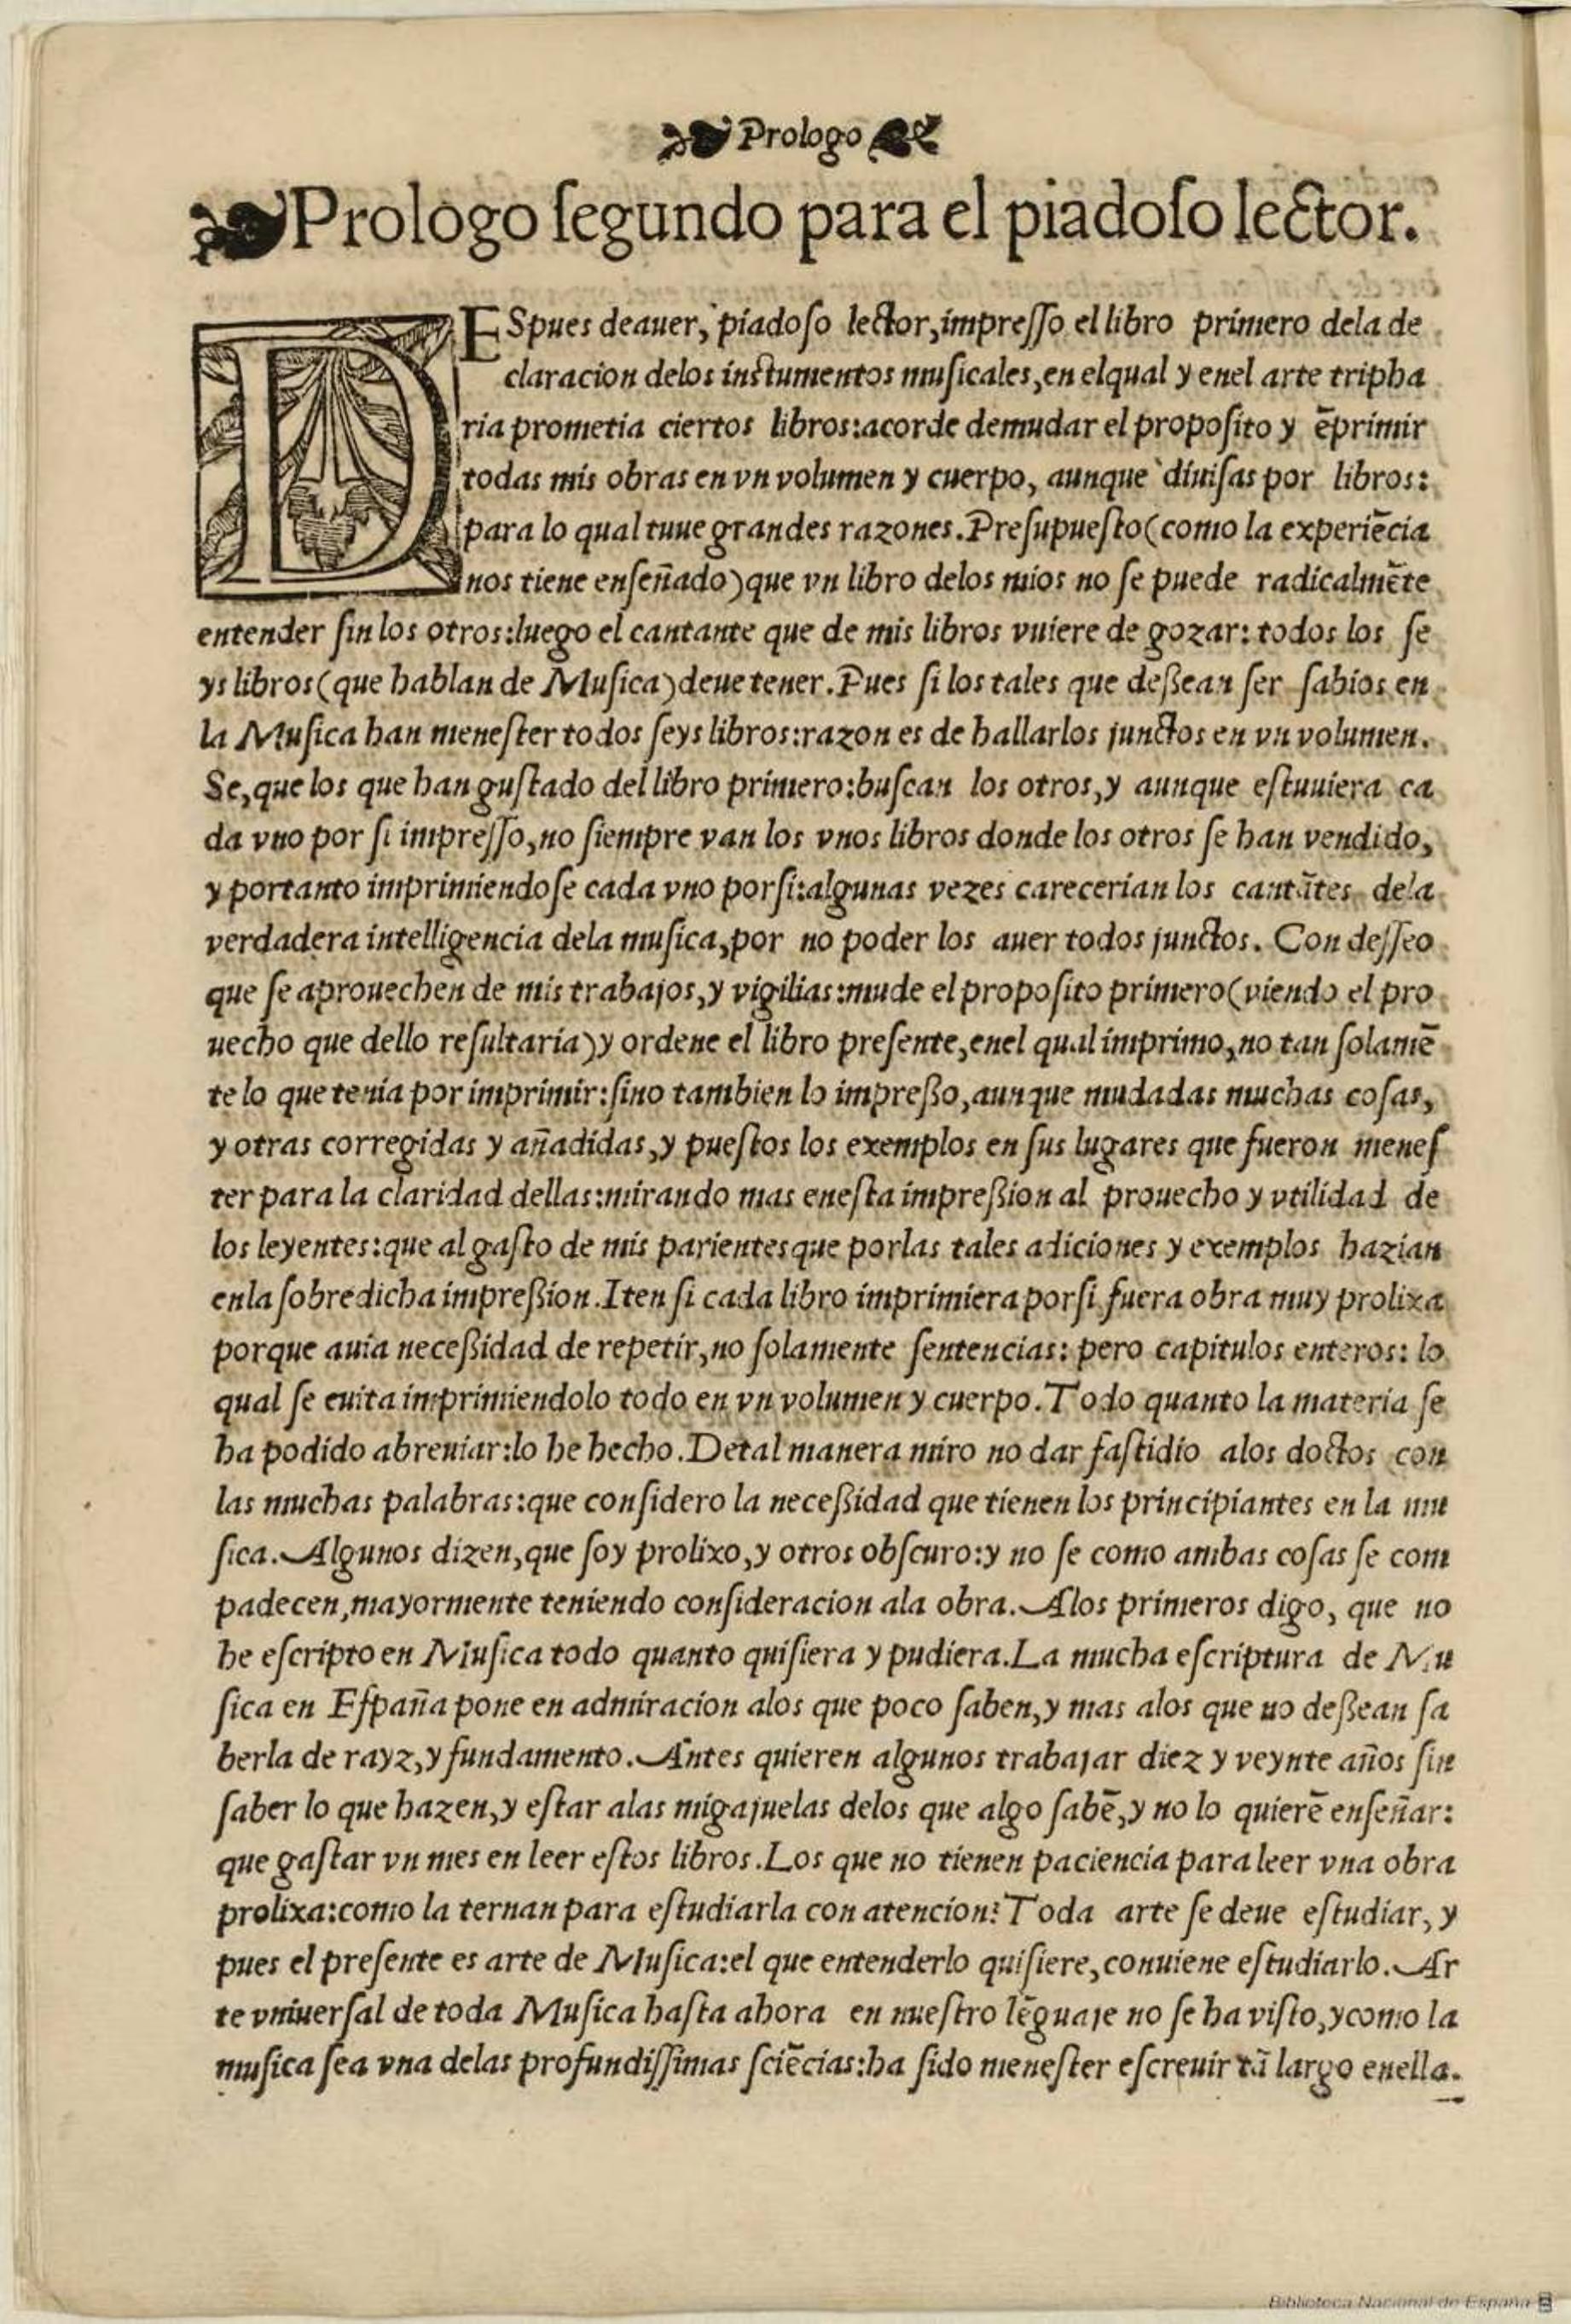 Prologo
Prologo ſegundo para el piadoſo lector.
DESpues deauer, piadoſo lector, impreſſo el libro primero dela de
claracion delos inſtumentos muſicales, en elqual y enel arte tripha
ria prometia ciertos libros: acorde demudar el propoſito y ēprimir
todas mis obras en vn volumen y cuerpo, aunque diuiſas por libros:
para lo qual tuue grandes razones. Preſupueſto (como la experiēcia
nos tiene enſeñado) que vn libro delos mios no ſe puede radicalmēte
entender ſin los otros: luego el cantante que de mis libros vuiere de gozar: todos los ſe
ys libros (que hablan de Muſica) deue tener. Pues ſi los tales que deßean ſer ſabios en
la Muſica han meneſter todos ſeys libros: razon es de hallarlos junctos en vn volumen.
Se, que los que han guſtado del libro primero: buſcan los otros, y aunque eſtuuiera ca
da vno por ſi impreſſo, no ſiempre van los vnos libros donde los otros ſe han vendido,
y portanto imprimiendoſe cada vno porſi: algunas vezes carecerian los cantātes dela
verdadera intelligencia dela muſica, por no poder los auer todos junctos. Con deſſeo
que ſe aprouechen de mis trabajos, y vigilias: mude el propoſito primero (viendo el pro
uecho que dello reſultaria) y ordene el libro preſente, enel qual imprimo, no tan ſolamē
te lo que tenia por imprimir: ſino tambien lo impreßo, aunque mudadas muchas coſas,
y otras corregidas y añadidas, y pueſtos los exemplos en ſus lugares que fueron meneſ
ter para la claridad dellas: mirando mas eneſta impreßion al prouecho y vtilidad de
los leyentes: que al gaſto de mis parientes que porlas tales adiciones y exemplos hazian
enla ſobredicha impreßion. Iten ſi cada libro imprimiera porſi fuera obra muy prolixa
porque auia neceßidad de repetir, no ſolamente ſentencias: pero capitulos enteros: lo
qual ſe euita imprimiendolo todo en vn volumen y cuerpo. Todo quanto la materia ſe
ha podido abreuiar: lo he hecho. Detal manera miro no dar faſtidio alos doctos con
las muchas palabras: que conſidero la neceßidad que tienen los principiantes en la mu
ſica. Algunos dizen, que ſoy prolixo, y otros obſcuro: y no ſe como ambas coſas ſe com
padecen, mayormente teniendo conſideracion ala obra. Alos primeros digo, que no
he eſcripto en Muſica todo quanto quiſiera y pudiera. La mucha eſcriptura de Mu
ſica en Eſpaña pone en admiracion alos que poco ſaben, y mas alos que no deßean ſa
berla de rayz, y fundamento. Antes quieren algunos trabajar diez y veynte años ſin
ſaber lo que hazen, y eſtar alas migajuelas delos que algo ſabē, y no lo quierē enſeñar:
que gaſtar vn mes en leer eſtos libros. Los que no tienen paciencia para leer vna obra
prolixa: como la ternan para eſtudiarla con atencion? Toda arte ſe deue eſtudiar, y
pues el preſente es arte de Muſica: el que entenderlo quiſiere, conuiene eſtudiarlo. Ar
te vniuerſal de toda Muſica haſta ahora en nueſtro lēguaje no ſe ha viſto, y como la
muſica ſea vna delas profundiſſimas ſciēcias: ha ſido meneſter eſcreuir tā largo enella.
Biblioteca Nacional de España